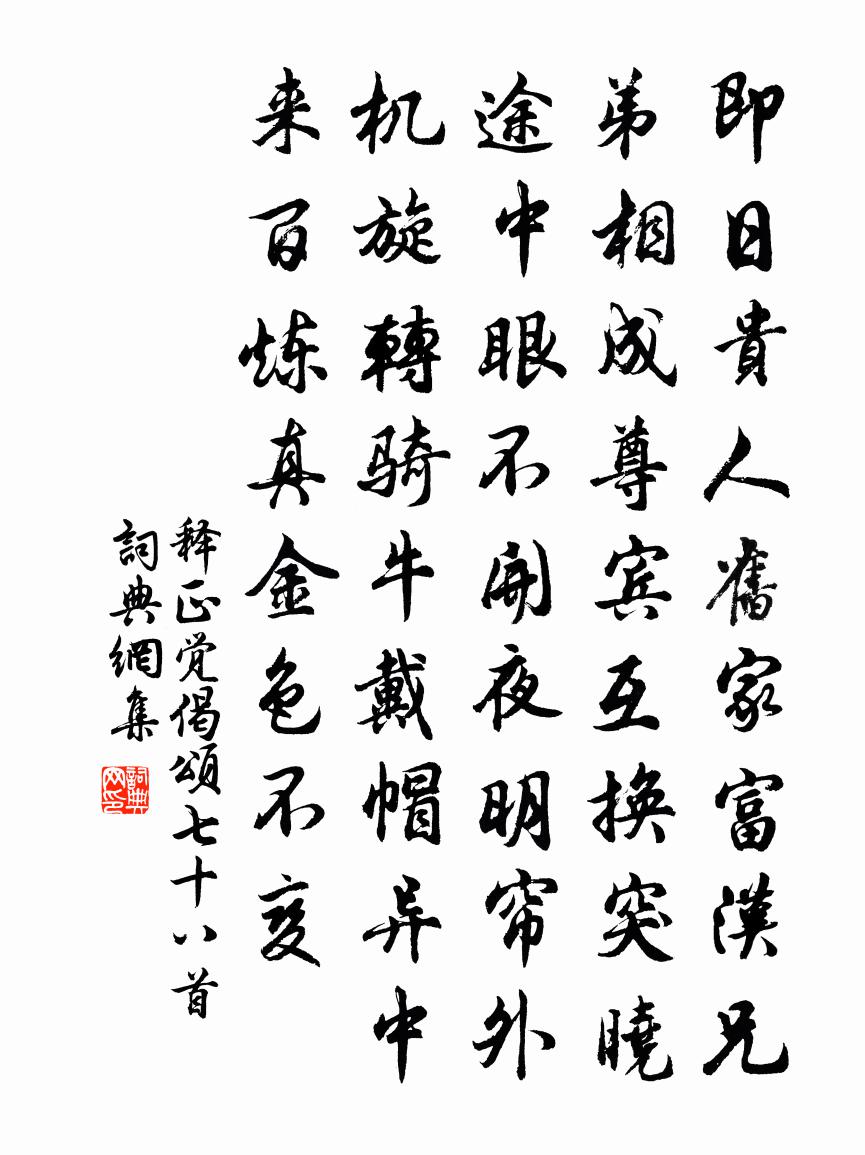 即日貴人舊家富漢兄
弟相成尊宾互换突曉
途中眼不開夜明帘外
机旋轉骑牛戴帽异中
来百炼真金色不变
释正觉偈頌七十八首
詞典網集
詞典网印